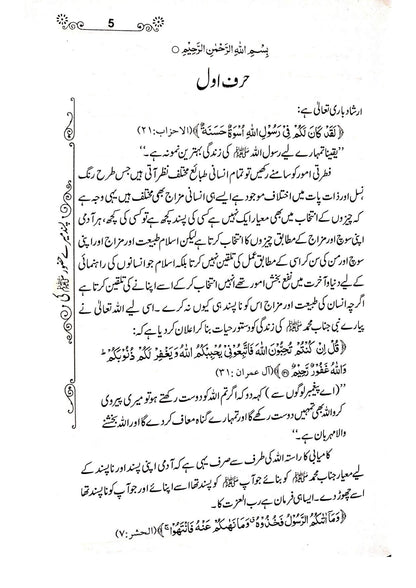 5
بِسْمِ اللهِ الرَّحْمٰنِ الرَّحِيْمِ
حرف اول
ارشاد باری تعالیٰ ہے:
﴿لَقَدْ كَانَ لَكُمْ فِيْ رَسُوْلِ اللهِ اُسْوَةٌ حَسَنَةٌ﴾ (الاحزاب:۲۱)
’’یقیناً تمہارے لیے رسول اللہ ﷺ کی زندگی بہترین نمونہ ہے۔‘‘
فطرتی امور کو سامنے رکھیں تو تمام انسانی طبائع مختلف نظر آتی ہیں جس طرح رنگ
نسل اور ذات پات میں اختلاف موجود ہے ایسے ہی انسانی مزاج بھی مختلف ہیں یہی وجہ ہے
کہ چیزوں کے انتخاب میں بھی معیار ایک نہیں ہے کسی کی پسند کچھ ہے تو کسی کی کچھ، ہر آدمی
اپنی سوچ اور مزاج کے مطابق چیزوں کا انتخاب کرتا ہے لیکن اسلام طبیعت اور مزاج اور اپنی
سوچ اور من کی سن کر اسی کے مطابق عمل کی تلقین نہیں کرتا بلکہ اسلام جو انسانوں کی راہنمائی
کے لیے دنیا و آخرت میں نفع بخش امور تھے انہیں انتخاب کر کے اسے اپنانے کی تلقین کرتا ہے
اگرچہ انسان کی طبیعت اور مزاج اس کو ناپسند ہی کیوں نہ کرے۔ اسی لیے اللہ تعالیٰ نے
پیارے نبی جناب محمد ﷺ کی زندگی کو دستور حیات بنا کر اعلان کر دیا ہے کہ:
﴿قُلْ اِنْ كُنْتُمْ تُحِبُّوْنَ اللهَ فَاتَّبِعُوْنِيْ يُحْبِبْكُمُ اللهُ وَيَغْفِرْ لَكُمْ ذُنُوْبَكُمْ ؕ
وَاللهُ غَفُوْرٌ رَّحِيْمٌ﴾ (آل عمران:۳۱)
’’(اے پیغمبر لوگوں سے) کہہ دو کہ اگر تم اللہ کو دوست رکھتے ہو تو میری پیروی
کرو اللہ بھی تمہیں دوست رکھے گا اور تمہارے گناہ معاف کر دے گا اور اللہ بخشنے
والا مہربان ہے۔‘‘
کامیابی کا راستہ اللہ کی طرف سے صرف یہی ہے کہ آدمی اپنی پسند اور ناپسند کے
لیے معیار جناب محمد ﷺ کو بنائے جو آپ کو پسند تھا اسے اپنائے اور جو آپ کو ناپسند تھا
اسے چھوڑ دے۔ ایسا ہی فرمان ہے رب العزت کا۔
﴿وَمَاۤ اٰتٰىكُمُ الرَّسُوْلُ فَخُذُوْهُ وَمَا نَهٰىكُمْ عَنْهُ فَانْتَهُوْا﴾ (الحشر:۷)
پسند میرے حضور ﷺ کی